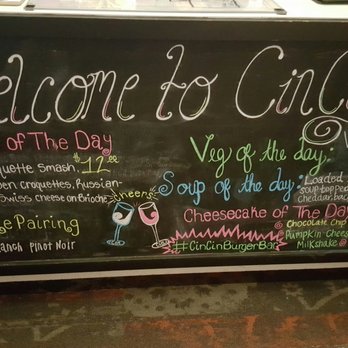 elcome to CinC
of The Day
quette Smash. $12.00
en croquettes, Russian-
Swiss cheese on Brioche
Cheers
e Pairing
anch Pinot Noir
Veg of the day:
Soup of the day:
Loaded
soup topped
cheddar, bac
Cheesecake of The Da
Chocolate Chip
Pumpkin Chees
Milkshake
#CinCinBurgerBar